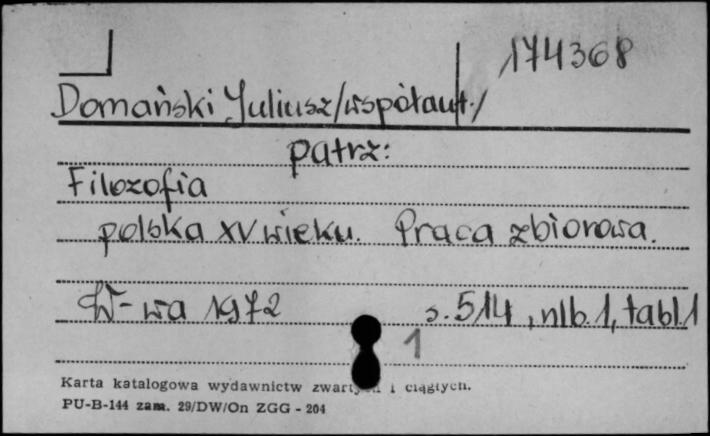 174368
Domański Juliusz/współaut./
patrz:
Filozofia
polska XV wieku. Praca zbiorowa.
W-wa 1972 s. 514, nlb. 1, tabl. 1
1
Karta katalogowa wydawnictw i ciągłych.
PU-B-144 zam. 29/DW/On ZGG - 204